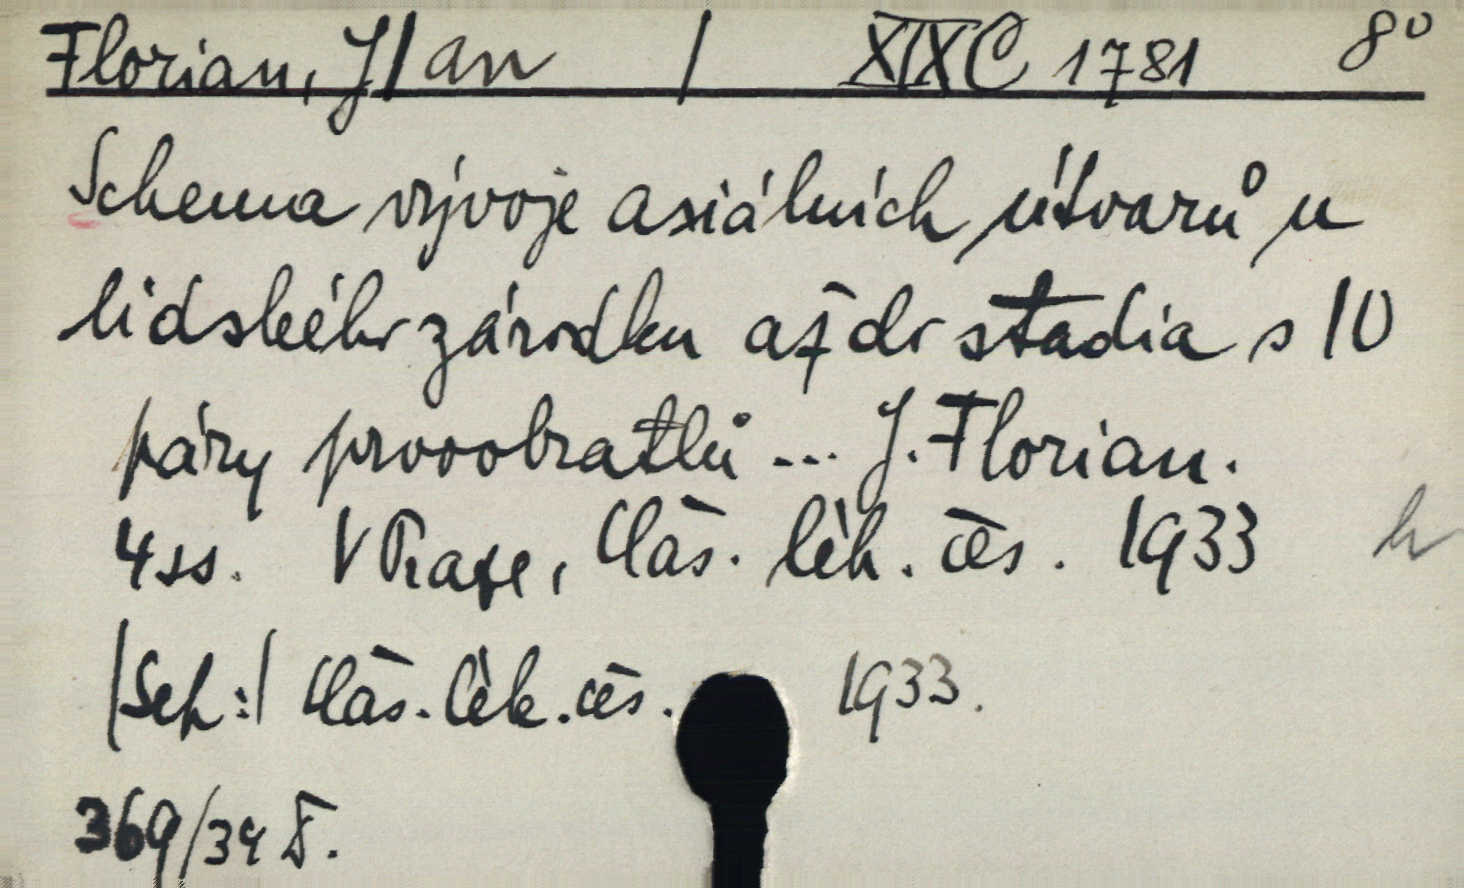 Florian, J/an / XIX C 1781 8°
Schema vývoje axiálních útvarů u
lidského zárodku až do stadia s 10
páry prvoobratlů ... J. Florian.
4 ss. V Praze, Čas. lék. čes. 1933
|Sep:| Čas. lék. čes. 1933.
369/34 Š.